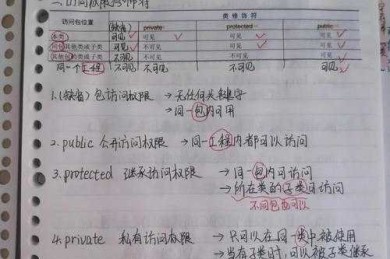 二、访问权限修饰符
类修饰符
访问包位置 (缺省) private protected public
本类 可见 可见 可见 可见
同包其他类或子类 可见 不可见 可见 可见
其他包的类或子类 不可见 不可见
同一个工程 不可见 不可见 不可见 可见
1.(缺省) 包访问权限 →无任何关键字
→同一包内可用
2. public 公开访问权限 →同一工程内都可以访问
3. protected 继承访问权限 →同一包内可访问
→所在类的子类可访问
不同包也可以
4. private 私有访问权限 →只可以在同一类中被使用
→当存在子类时,可以被子类继承